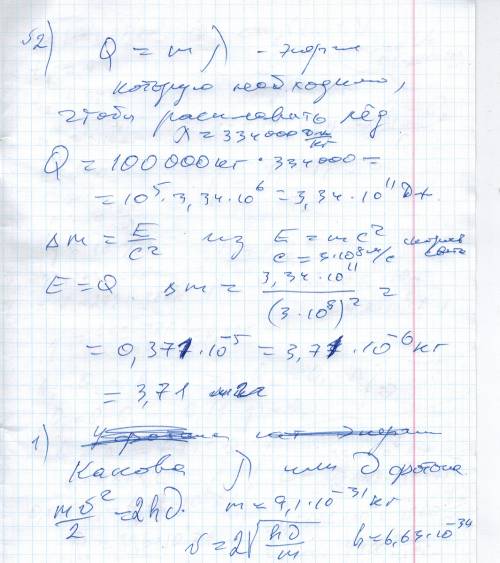 √2) Q = mλ - энергия
которую необходимо,
чтобы расплавить лёд
λ = 334000 Дж/кг
Q = 100 000 кг · 334000 =
= 10⁵ · 3,34 · 10⁶ = 3,34 · 10¹¹ Дж
Δm = E/c² из E = mc²
c = 3·10⁸ м/с скорость света
E = Q Δm = 3,34 · 10¹¹/(3 · 10⁸)² =
= 0,371 · 10⁻⁵ = 3,71 · 10⁻⁶ кг
= 3,71 мг
1)
Какова λ или υ фотона
mv²/2 = 2hυ. m = 9,1 · 10⁻³¹ кг
v = 2√(hυ/m) h = 6,63 · 10⁻³⁴